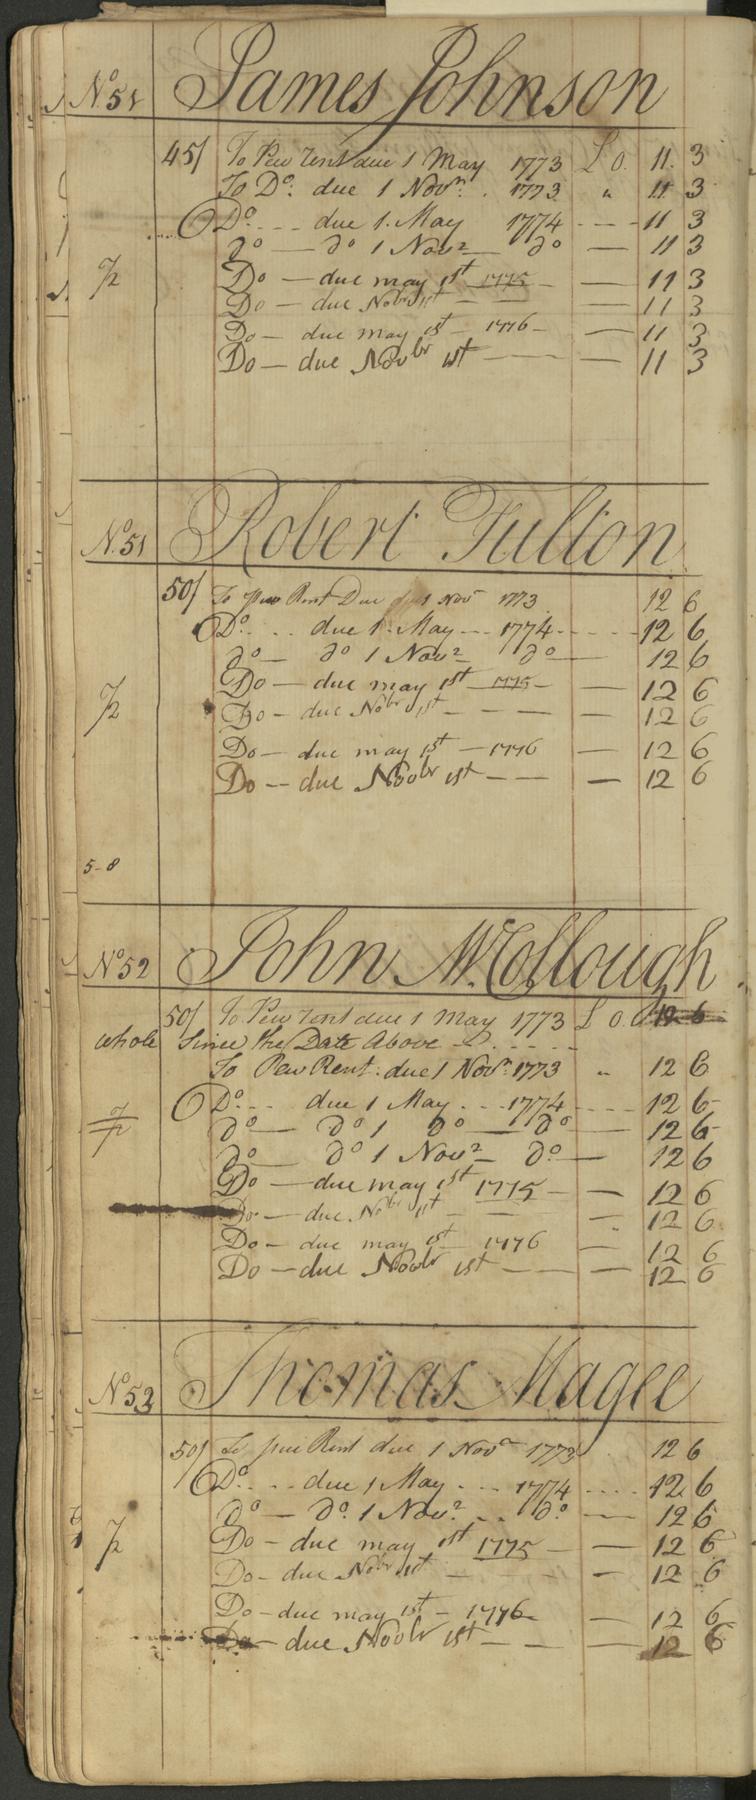 No 51 James Johnson
45/ To Pew Rent due 1 May 1773 £ 0. 11. 3
To Do. due 1 Novr. 1773 " 11 3
Do. due 1. May 1774 - - - 11 3
do — do 1 Novr — do — 11 3
½ Do — due may 1st 1775 — 11 3
Do — due Nobr 1st — — — 11 3
Do — due may 1st — 1776 — — 11 3
Do — due Novbr 1st — — — 11 3
No. 51 Robert Fulton
50/ To pew Rent Due 1 Novr 1773 12 6
Do. due 1. May - - - 1774 - - - - - 12 6
do — do 1 Novr — do — 12 6
½ Do — due may 1st — 1775 — — 12 6
Do — due Nobr 1st — — — 12 6
Do — due may 1st — 1776 — 12 6
Do — due Novbr 1st — — — 12 6
5-8
No 52 John McCollough
50/ To Pew Rent due 1 May 1773 £ 0. 12 6
whole Since the Date Above
To Pew Rent. due 1 Novr. 1773 " 12 6
Do. - - due 1 May - - - 1774 - - - - 12 6
½ do — do 1 do — do — 12 6
do — do 1 Novr — do — 12 6
Do — due may 1st 1775 — — 12 6
Do — due Nobr 1st — — — 12 6
Do — due may 1st — 1776 — 12 6
Do — due Novbr 1st — — — 12 6
No 52 Thomas Magee
50/ To pue Rent due 1 Novr 1773 12 6
Do. - - due 1 May - - - 1774 - - - - 12 6
do — do. 1 Novr. - - do. — 12 6
½ Do — due may 1st 1775 — — 12 6
Do — due Nobr 1st — — — 12 6
Do — due may 1st — 1776 — — 12 6
Do — due Novbr 1st — — — 12 6